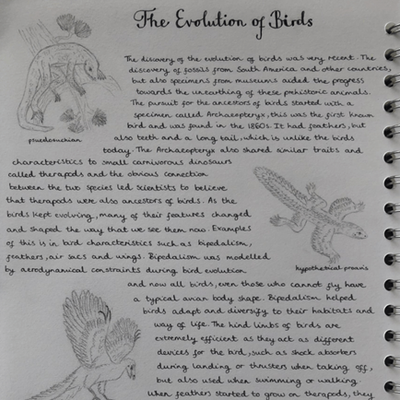 The Evolution of Birds
The discovery of the evolution of birds was very recent. The
discovery of fossils from South America and other countries,
but also specimens from museums aided the progress
towards the unearthing of these prehistoric animals.
The pursuit for the ancestors of birds started with a
specimen called Archaeopteryx, this was the first known
bird and was found in the 1860s. It had feathers, but
also teeth and a long tail, which is unlike the birds
today. The Archaeopteryx also shared similar traits and
characteristics to small carnivorous dinosaurs
called therapods and the obvious connection
between the two species led scientists to believe
that therapods were also ancestors of birds. As the
birds kept evolving, many of their features changed
and shaped the way that we see them now. Examples
of this is in bird characteristics such as bipedalism,
feathers, air sacs and wings. Bipedalism was modelled
by aerodynamical constraints during bird evolution
and now all birds, even those who cannot fly have
a typical avian body shape. Bipedalism helped
birds adapt and diversify to their habitats and
way of life. The hind limbs of birds are
extremely efficient as they act as different
devices for the bird, such as shock absorbers
during landing or thrusters when taking off,
but also used when swimming or walking.
When feathers started to grow on therapods, they
psuedosuchian
hypothetical proavis